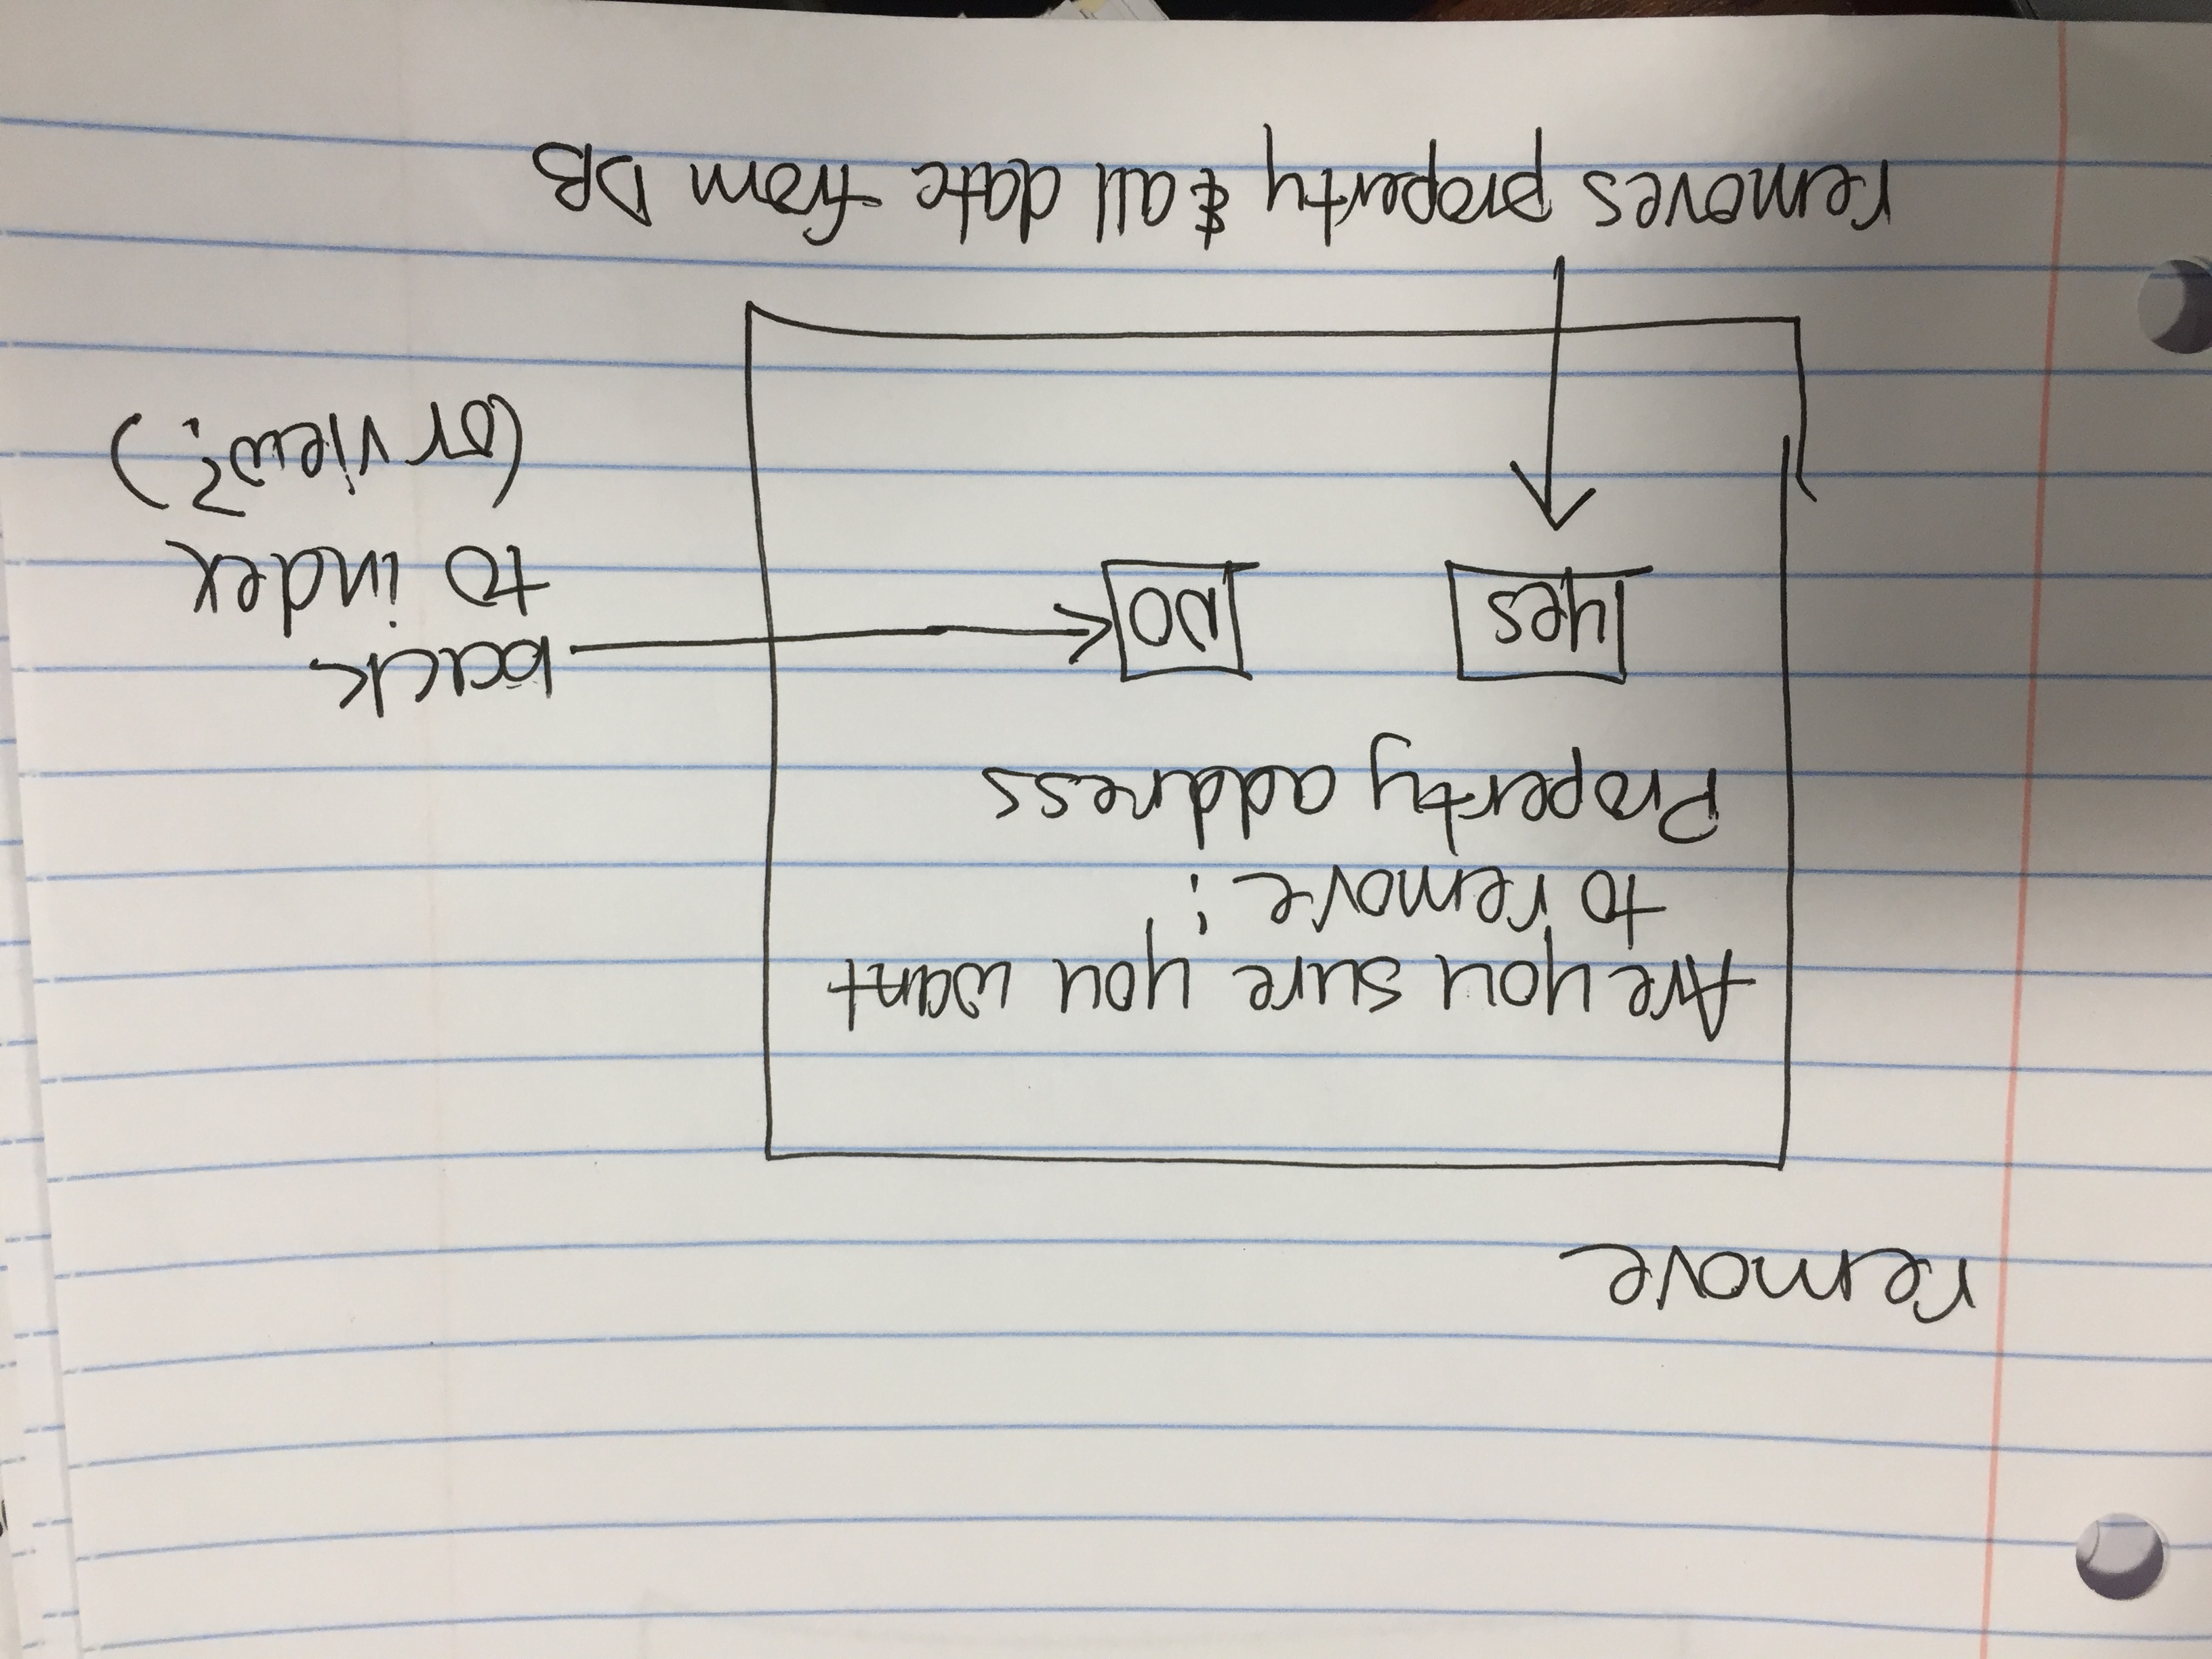 remove
Are you sure you want
to remove:
Property address
yes
NO
back
to index
(or view?)
removes property & all data from DB